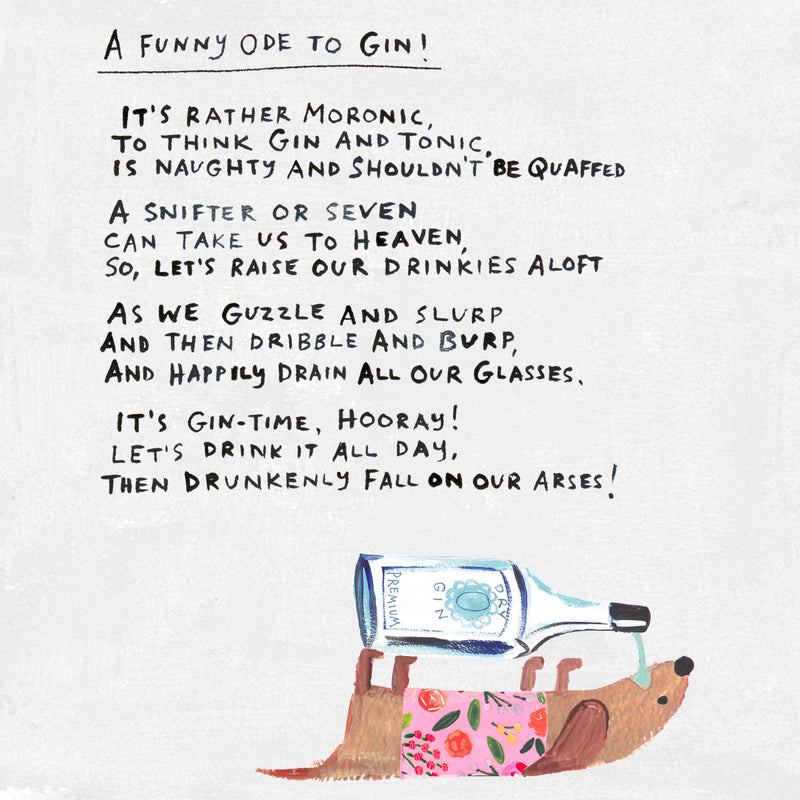 A FUNNY ODE TO GIN!
IT'S RATHER MORONIC,
TO THINK GIN AND TONIC,
IS NAUGHTY AND SHOULDN'T BE QUAFFED
A SNIFTER OR SEVEN
CAN TAKE US TO HEAVEN,
SO, LET'S RAISE OUR DRINKIES ALOFT
AS WE GUZZLE AND SLURP
AND THEN DRIBBLE AND BURP,
AND HAPPILY DRAIN ALL OUR GLASSES.
IT'S GIN-TIME, HOORAY!
LET'S DRINK IT ALL DAY,
THEN DRUNKENLY FALL ON OUR ARSES!
DRY
GIN
PREMIUM